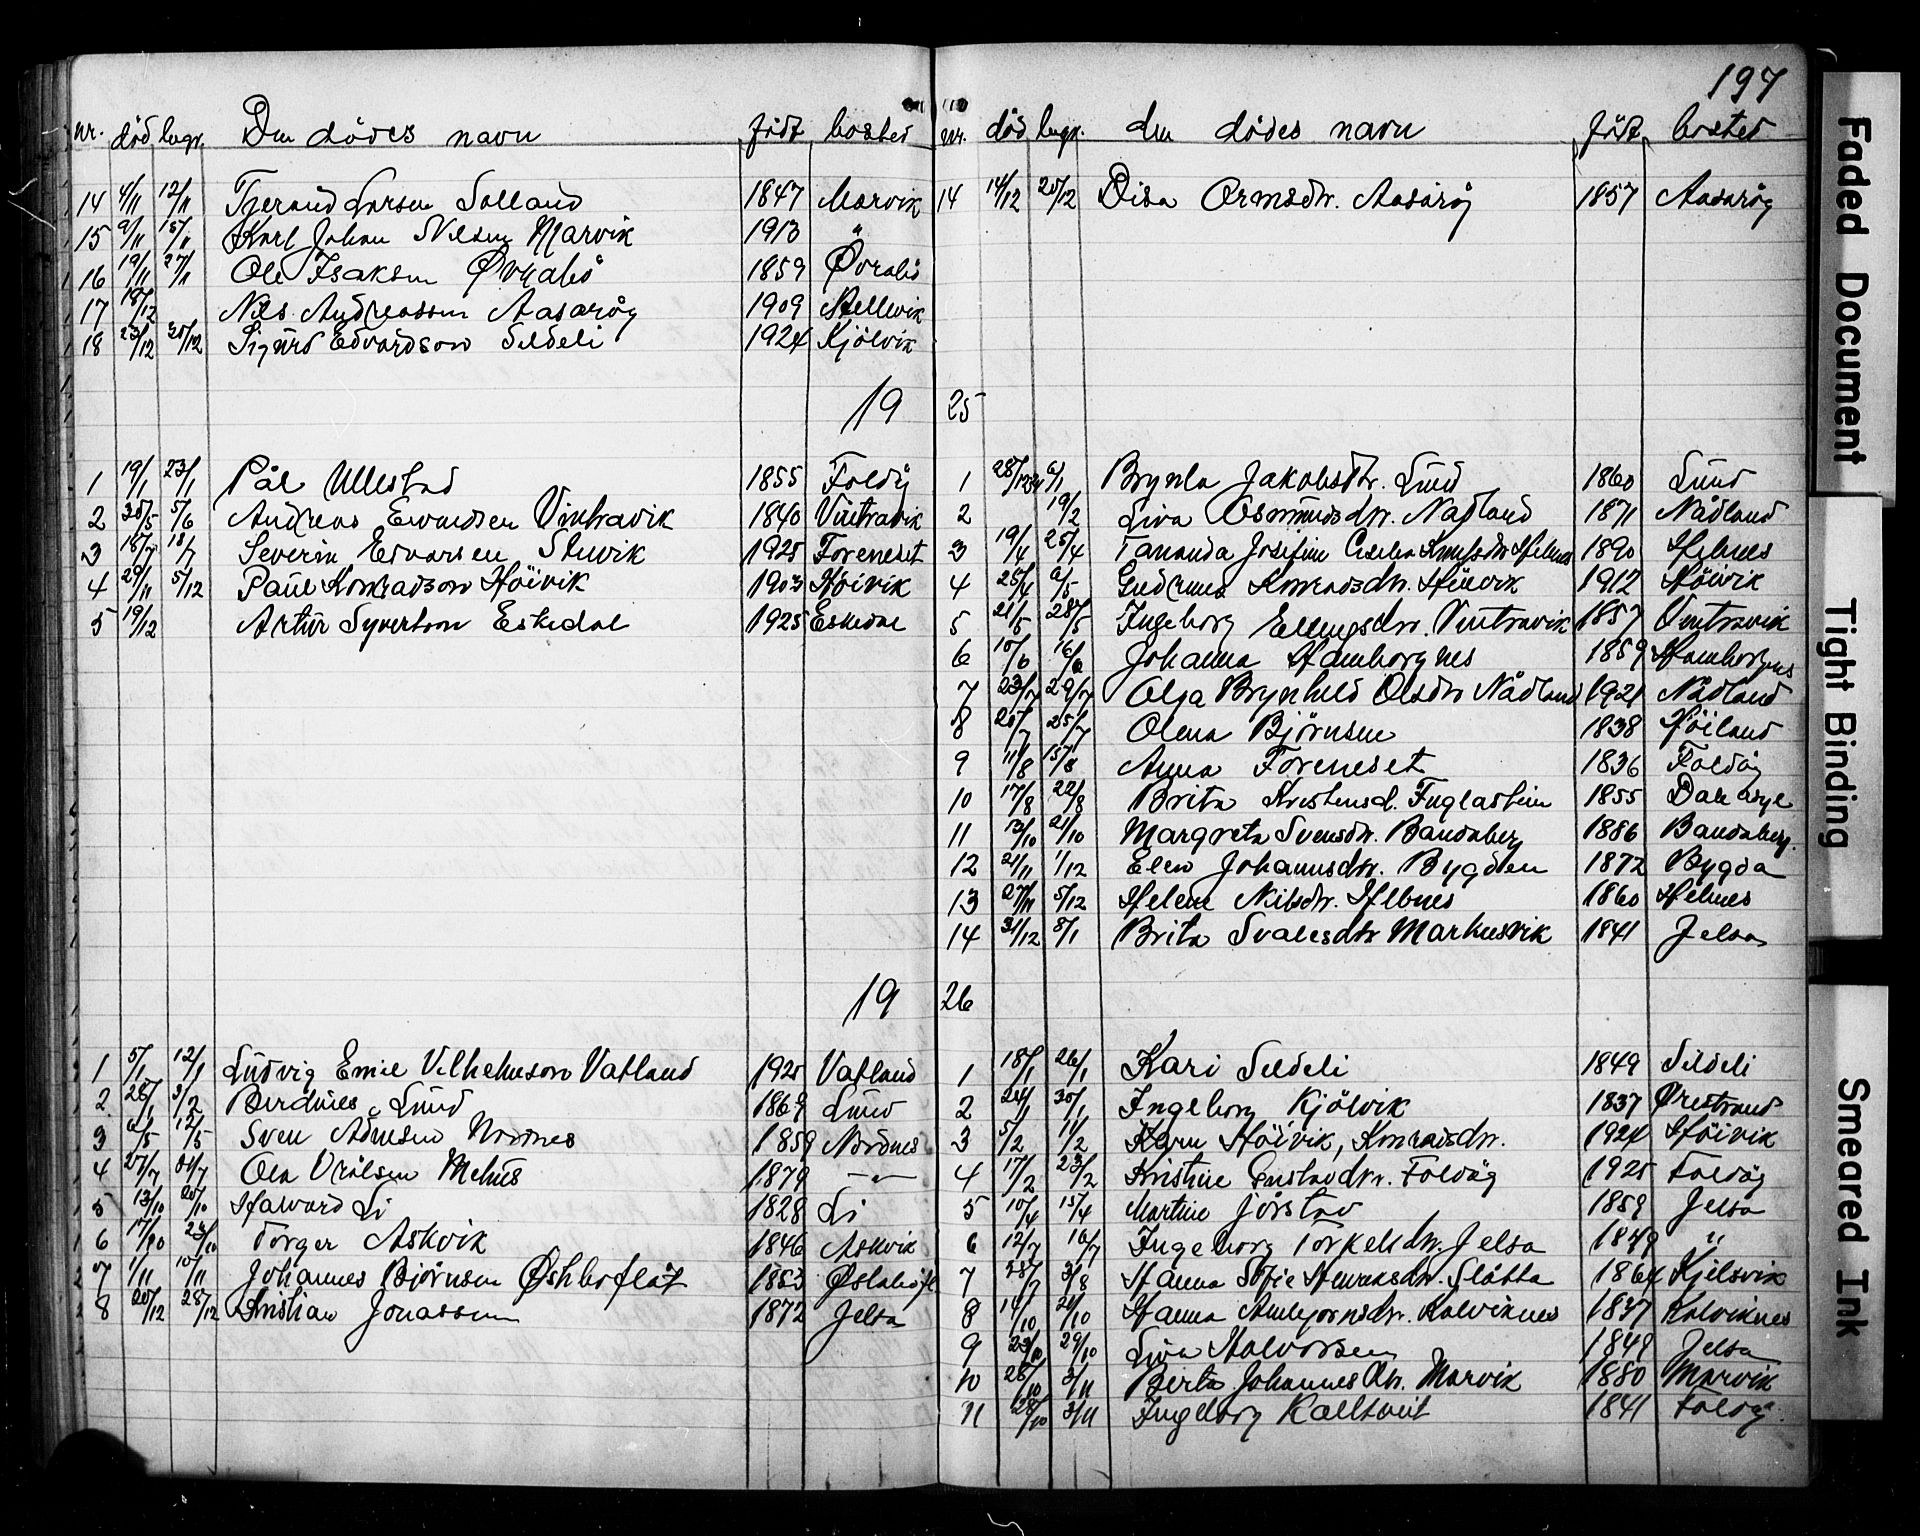 197
nr. död begr. Den dödes navn födt bosted
14 4/11 12/11 Tjerand Larsen Salland 1847 Marvik
15 9/11 15/11 Karl Johan Nilsen Marvik 1913 "
16 19/11 27/11 Ole Isaksen Øvrabö 1859 Øvrabö
17 18/12 Nils Andreassen Aasarög 1909 Hellevik
18 23/12 30/12 Sigurd Edvardson Seldeli 1924 Kjölvik
19
1 19/1 23/1 Pål Ullestad 1855 Foldöy
2 28/5 5/6 Andreas Evendsen Vintravik 1840 Vintravik
3 18/7 18/7 Severin Edvarsen 1925 Foreneset
4 29/11 5/12 Paul Konradson Höivik 1903 Höivik
5 19/12 Artur Syvertson Eskedal 1925 Eskedal
19
1 5/1 12/1 Ludvig Emil Vilhelmson Vatland 1920 Vatland
2 26/1 3/2 Berdines Lund 1869 Lund
3 4/5 12/5 Sven Nordnes 1859 Nordnes
4 27/7 31/7 Ola Mehus 1879 -"-
5 13/10 20/10 Halvard Li 1828 Li
6 17/10 23/10 Torger Askvik 1846 Askvik
7 1/11 10/11 Johannes Bjørnsen 1853
8 20/12 28/12 Kristian Jonassen 1872 Jelsa
nr. död begr. den dödes navn födt bosted
14 14/12 20/12 Disa Ormsdtr. Aasarög 1857 Aasarög
25
1 28/12 24 6/1 Brynla Jakobsdtr. Lund 1860 Lund
2 19/2 Liva Osmundsdtr. Nådland 1871 Nådland
3 19/4 25/4 Tananda Josefine Knutsdtr Helnes 1890 Helnes
4 25/4 6/5 Gudrun Konradsdtr. Höivik 1912 Höivik
5 21/5 28/5 Ingeborg Ellingsdtr. Vintravik 1857 Vintravik
6 10/6 16/6 Johanna Hamborgnes 1859 Hamborgnes
7 23/7 29/7 Olga Brynhild Olsdtr Nådland 1921 Nådland
8 20/7 25/7 Olena Bjørnsen 1838 Höiland
9 11/8 15/8 Anna Foreneset 1836 Foldöy
10 17/8 22/8 Brita Kristensd. Fuglastein 1855
11 13/10 21/10 Margreta Svensdtr. Bandaberg 1886 Bandaberg.
12 21/11 1/12 Elen Johannsdtr. Bygden 1872 Bygda
13 27/11 5/12 Helene Nilsdtr. Helnes 1860 Helnes
14 31/12 8/1 Brita Svalesdtr Markusvik 1841 Jelsa
26
1 18/1 26/1 Kari Seldeli 1849 Seldeli
2 24/1 30/1 Ingeborg Kjölvik 1837 Ørestrand
3 5/2 11/2 Karen Höivik, Konradsdtr. 1924 Höivik
4 17/2 23/2 Kristine Gustavdtr. Foldöy 1925 Foldöy
5 10/4 15/4 Martine Jörstad 1859 Jelsa
6 12/7 16/7 Ingeborg Torkelsdtr. Jelsa 1849 "
7 28/7 3/8 Hanna Sofie Henriksdtr. Slåtta 1864 Kjilsvik
8 14/10 20/10 Hanna Anbjornsdtr. Kalviknes 1837 Kalviknes
9 23/10 29/10 Liva Halvorsen 1849 Jelsa
10 28/10 3/11 Berta Johannes dtr. Marvik 1880 Marvik
11 28/10 3/11 Ingeborg Kalltveit 1841 Foldöy
Faded Document
Tight Binding
Smeared Ink